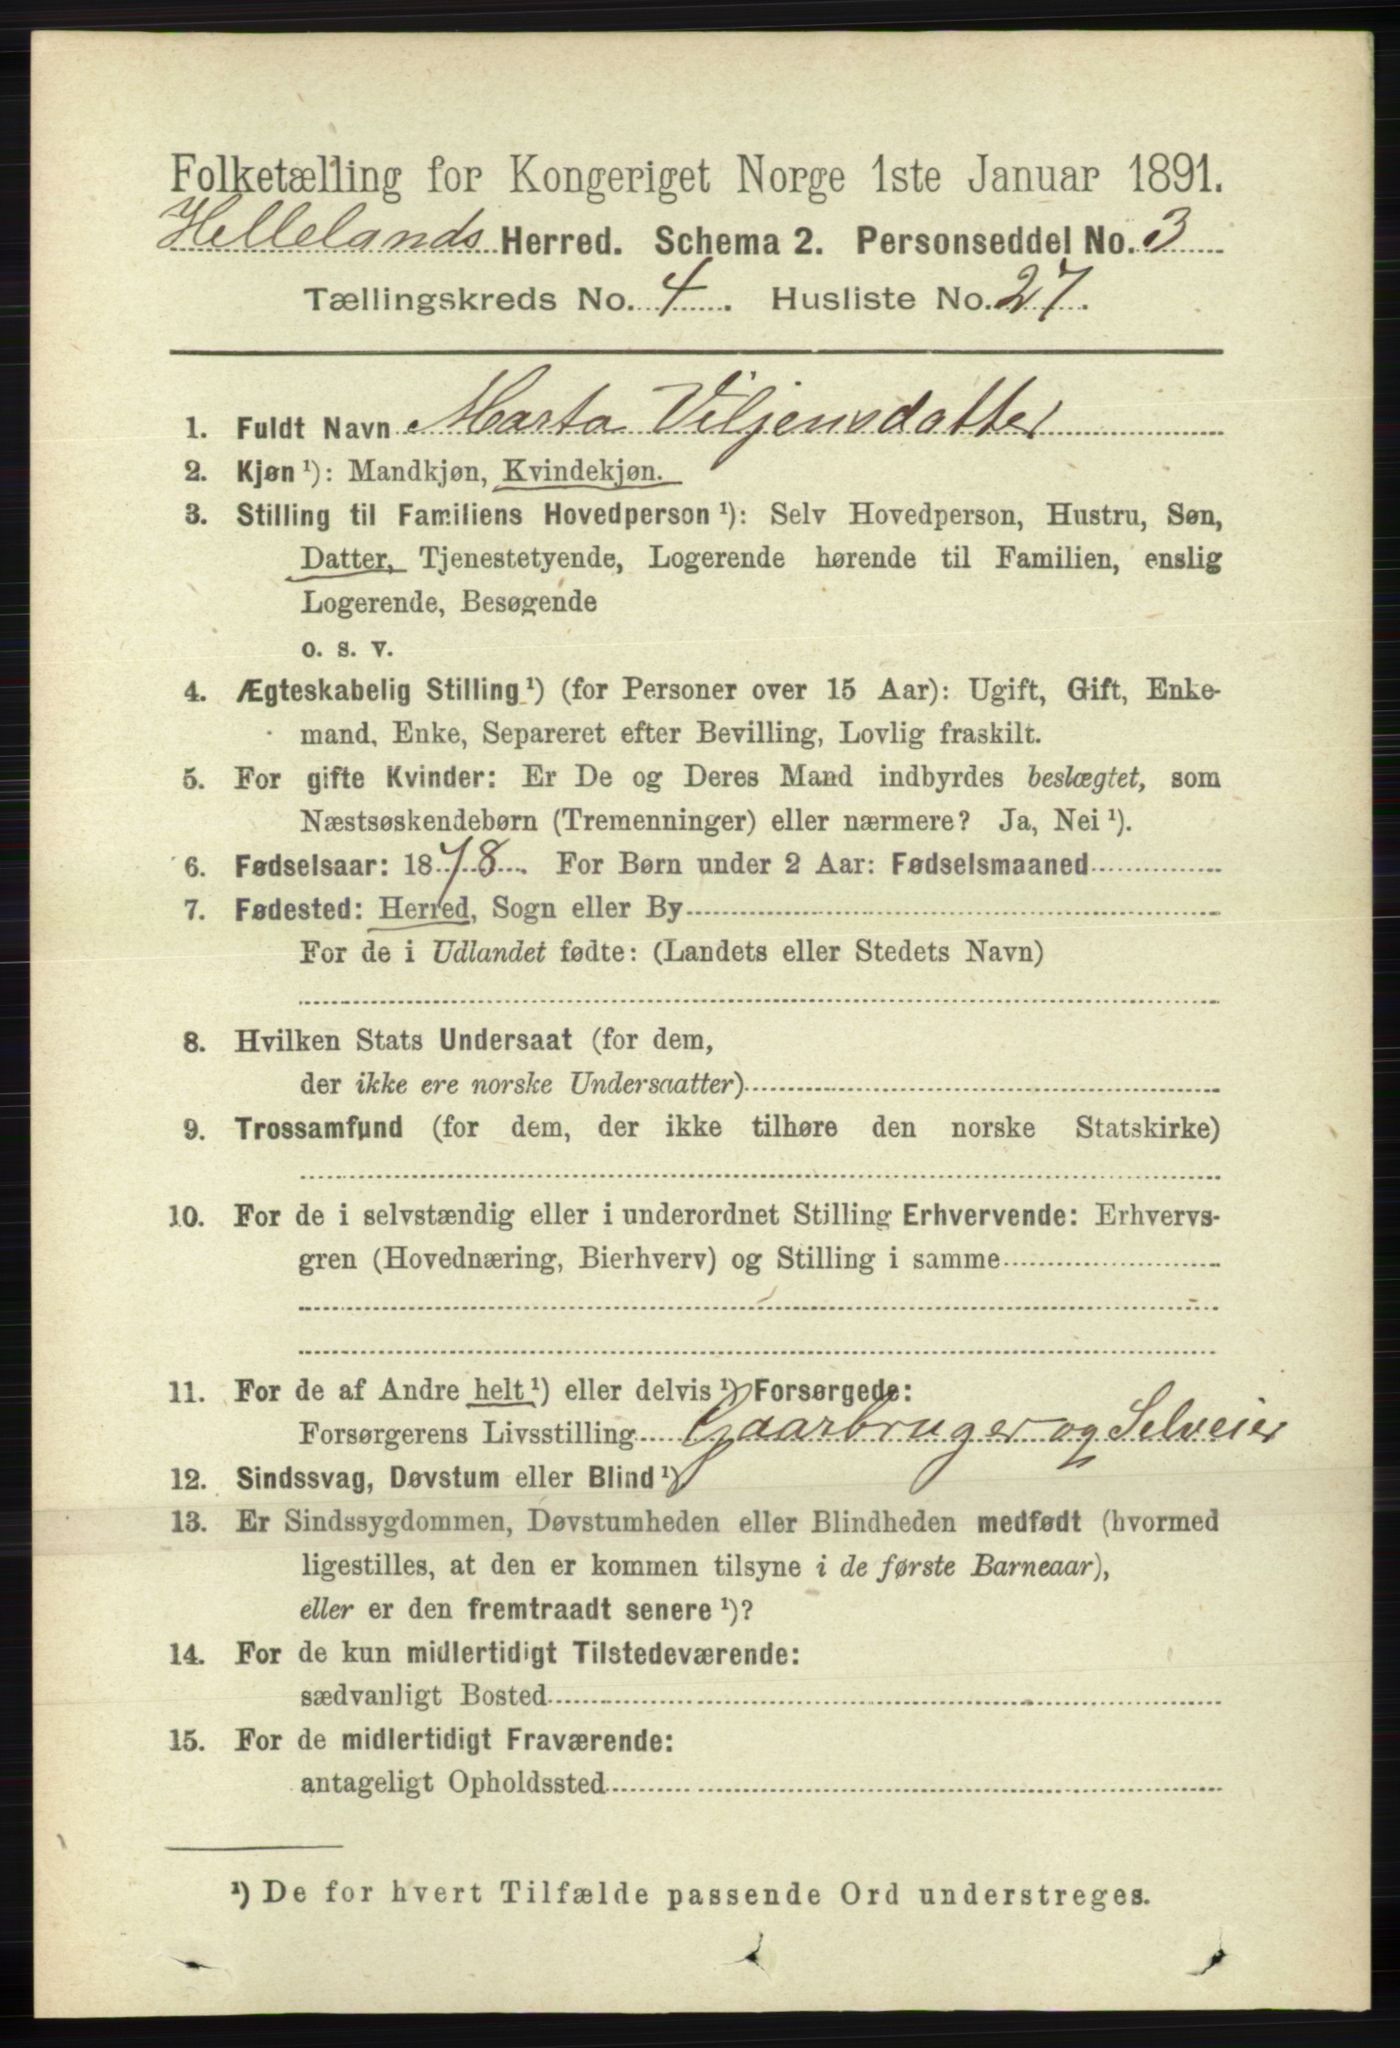 Folketælling for Kongeriget Norge 1ste Januar 1891.
Hellelands Herred. Schema 2. Personseddel No. 3
Tællingskreds No. 4. Husliste No. 27.
1. Fuldt Navn Marta Viljensdatter
2. Kjøn ¹): Mandkjøn, Kvindekjøn.
3. Stilling til Familiens Hovedperson ¹): Selv Hovedperson, Hustru, Søn,
Datter, Tjenestetyende, Logerende hørende til Familien, enslig
Logerende, Besøgende
o. s. v.
4. Ægteskabelig Stilling ¹) (for Personer over 15 Aar): Ugift, Gift, Enke-
mand, Enke, Separeret efter Bevilling, Lovlig fraskilt.
5. For gifte Kvinder: Er De og Deres Mand indbyrdes beslægtet, som
Næstsøskendebørn (Tremenninger) eller nærmere? Ja, Nei ¹).
6. Fødselsaar: 1878. For Børn under 2 Aar: Fødselsmaaned
7. Fødested: Herred, Sogn eller By
For de i Udlandet fødte: (Landets eller Stedets Navn)
8. Hvilken Stats Undersaat (for dem,
der ikke ere norske Undersaatter)
9. Trossamfund (for dem, der ikke tilhøre den norske Statskirke)
10. For de i selvstændig eller i underordnet Stilling Erhvervende: Erhvervs-
gren (Hovednæring, Bierhverv) og Stilling i samme
11. For de af Andre helt ¹) eller delvis ¹) Forsørgede:
Forsørgerens Livsstilling Gaarbruger og Selveier
12. Sindssvag, Døvstum eller Blind ¹)
13. Er Sindssygdommen, Døvstumheden eller Blindheden medfødt (hvormed
ligestilles, at den er kommen tilsyne i de første Barneaar),
eller er den fremtraadt senere ¹)?
14. For de kun midlertidigt Tilstedeværende:
sædvanligt Bosted
15. For de midlertidigt Fraværende:
antageligt Opholdssted
¹) De for hvert Tilfælde passende Ord understreges.